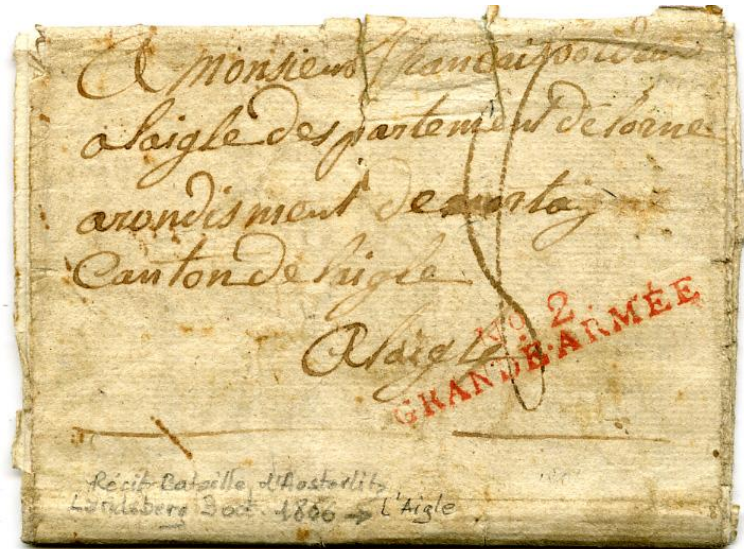 A Monsieur françois
a laigle despartement de lorne
arondisment de mortagne
Canton de laigle
A laigle
No. 2.
GRANDE-ARMÉE
Récit Bataille d'Austerlitz
Landsberg 3 oct. 1806 → L'Aigle